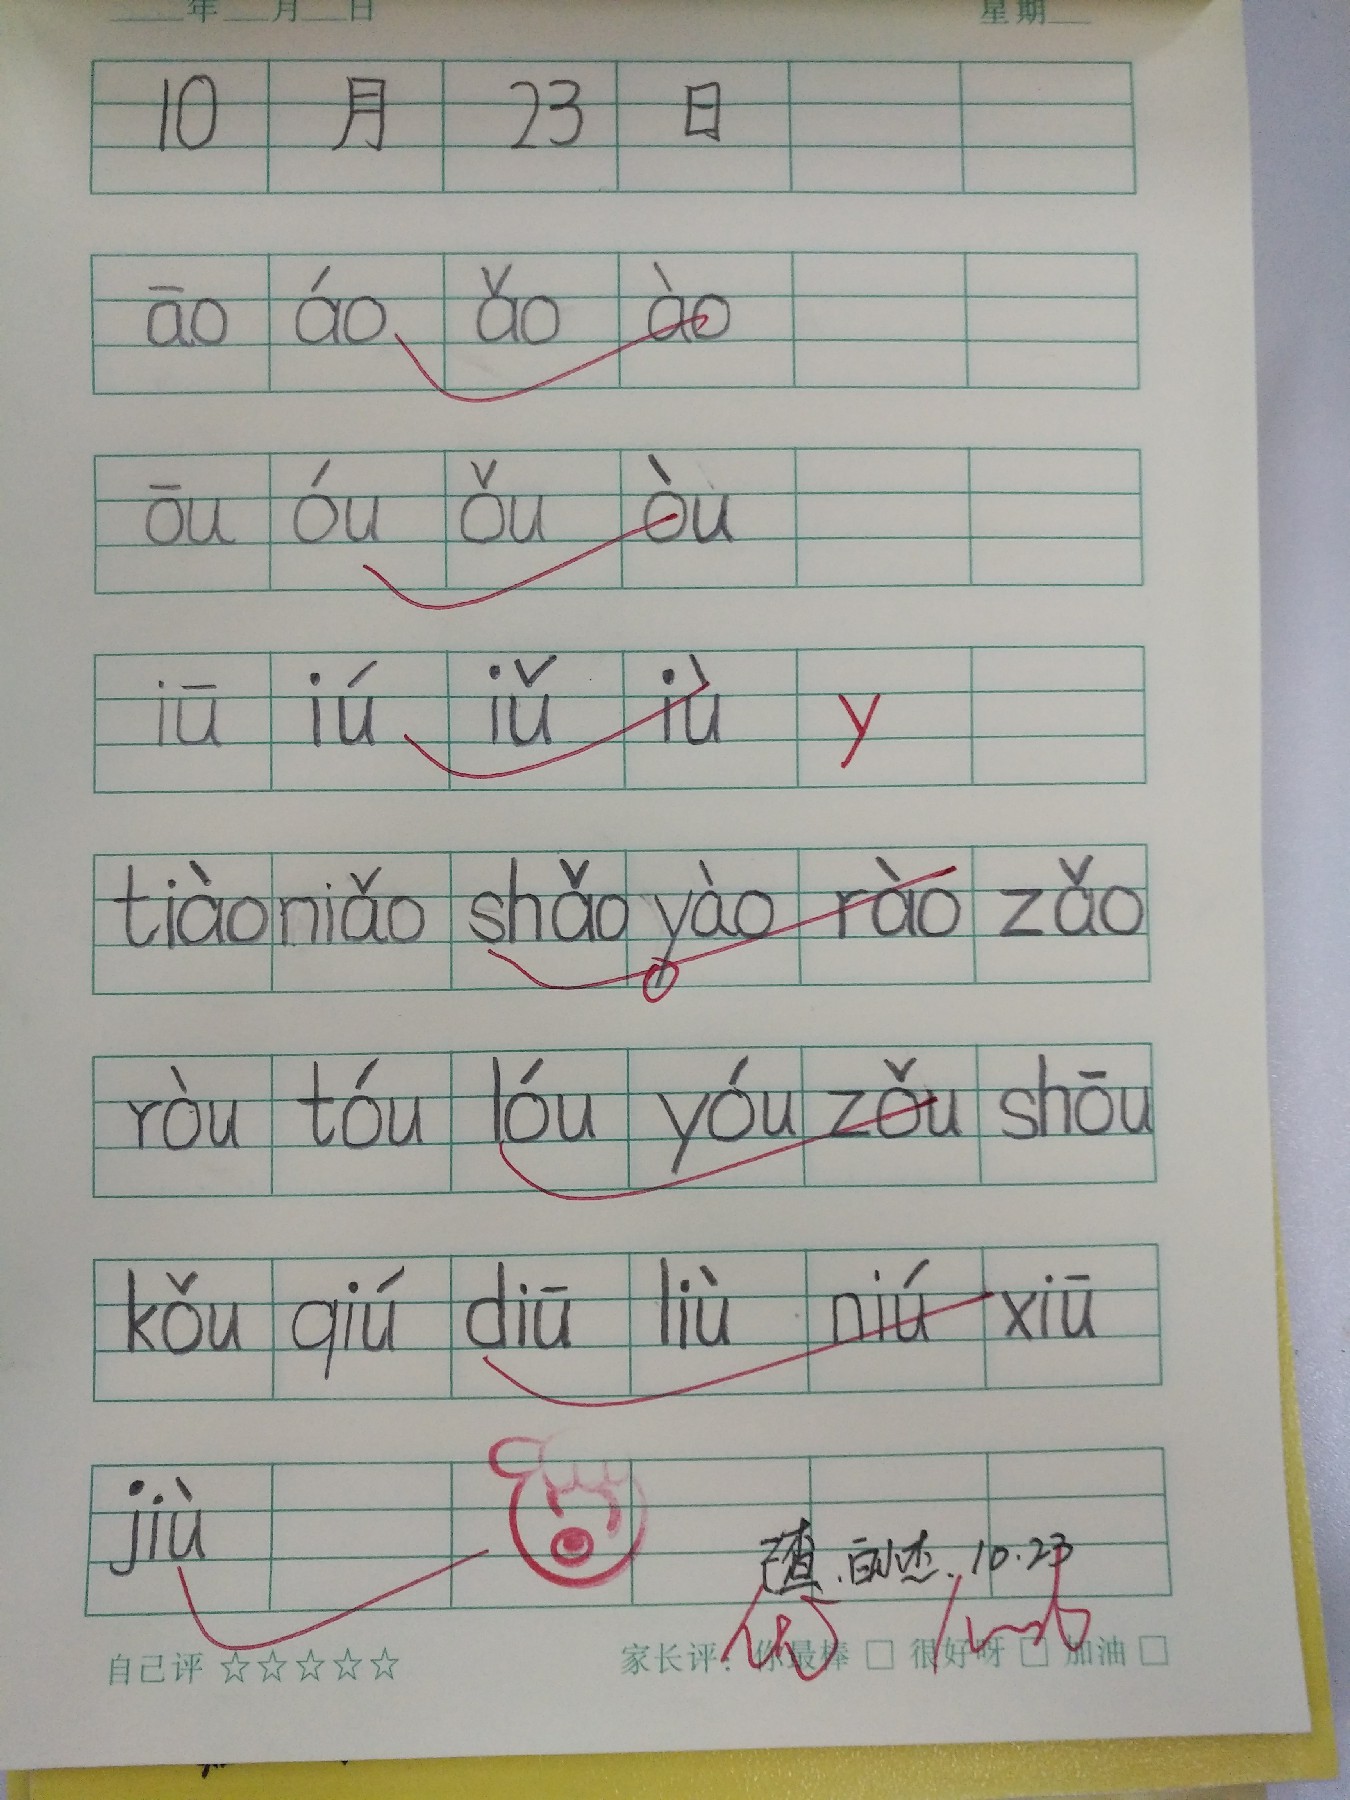 年 月 日 星期
10 月 23 日
āo áo ǎo ào
ōu óu ǒu òu
iū iú iǔ iù y
tiào niǎo shǎo yào rào zǎo
ròu tóu lóu yóu zǒu shōu
kǒu qiú diū liù niú xiū
jiù
10.23
自己评 ☆☆☆☆☆ 家长评：你最棒 □ 很好呀 □ 加油 □